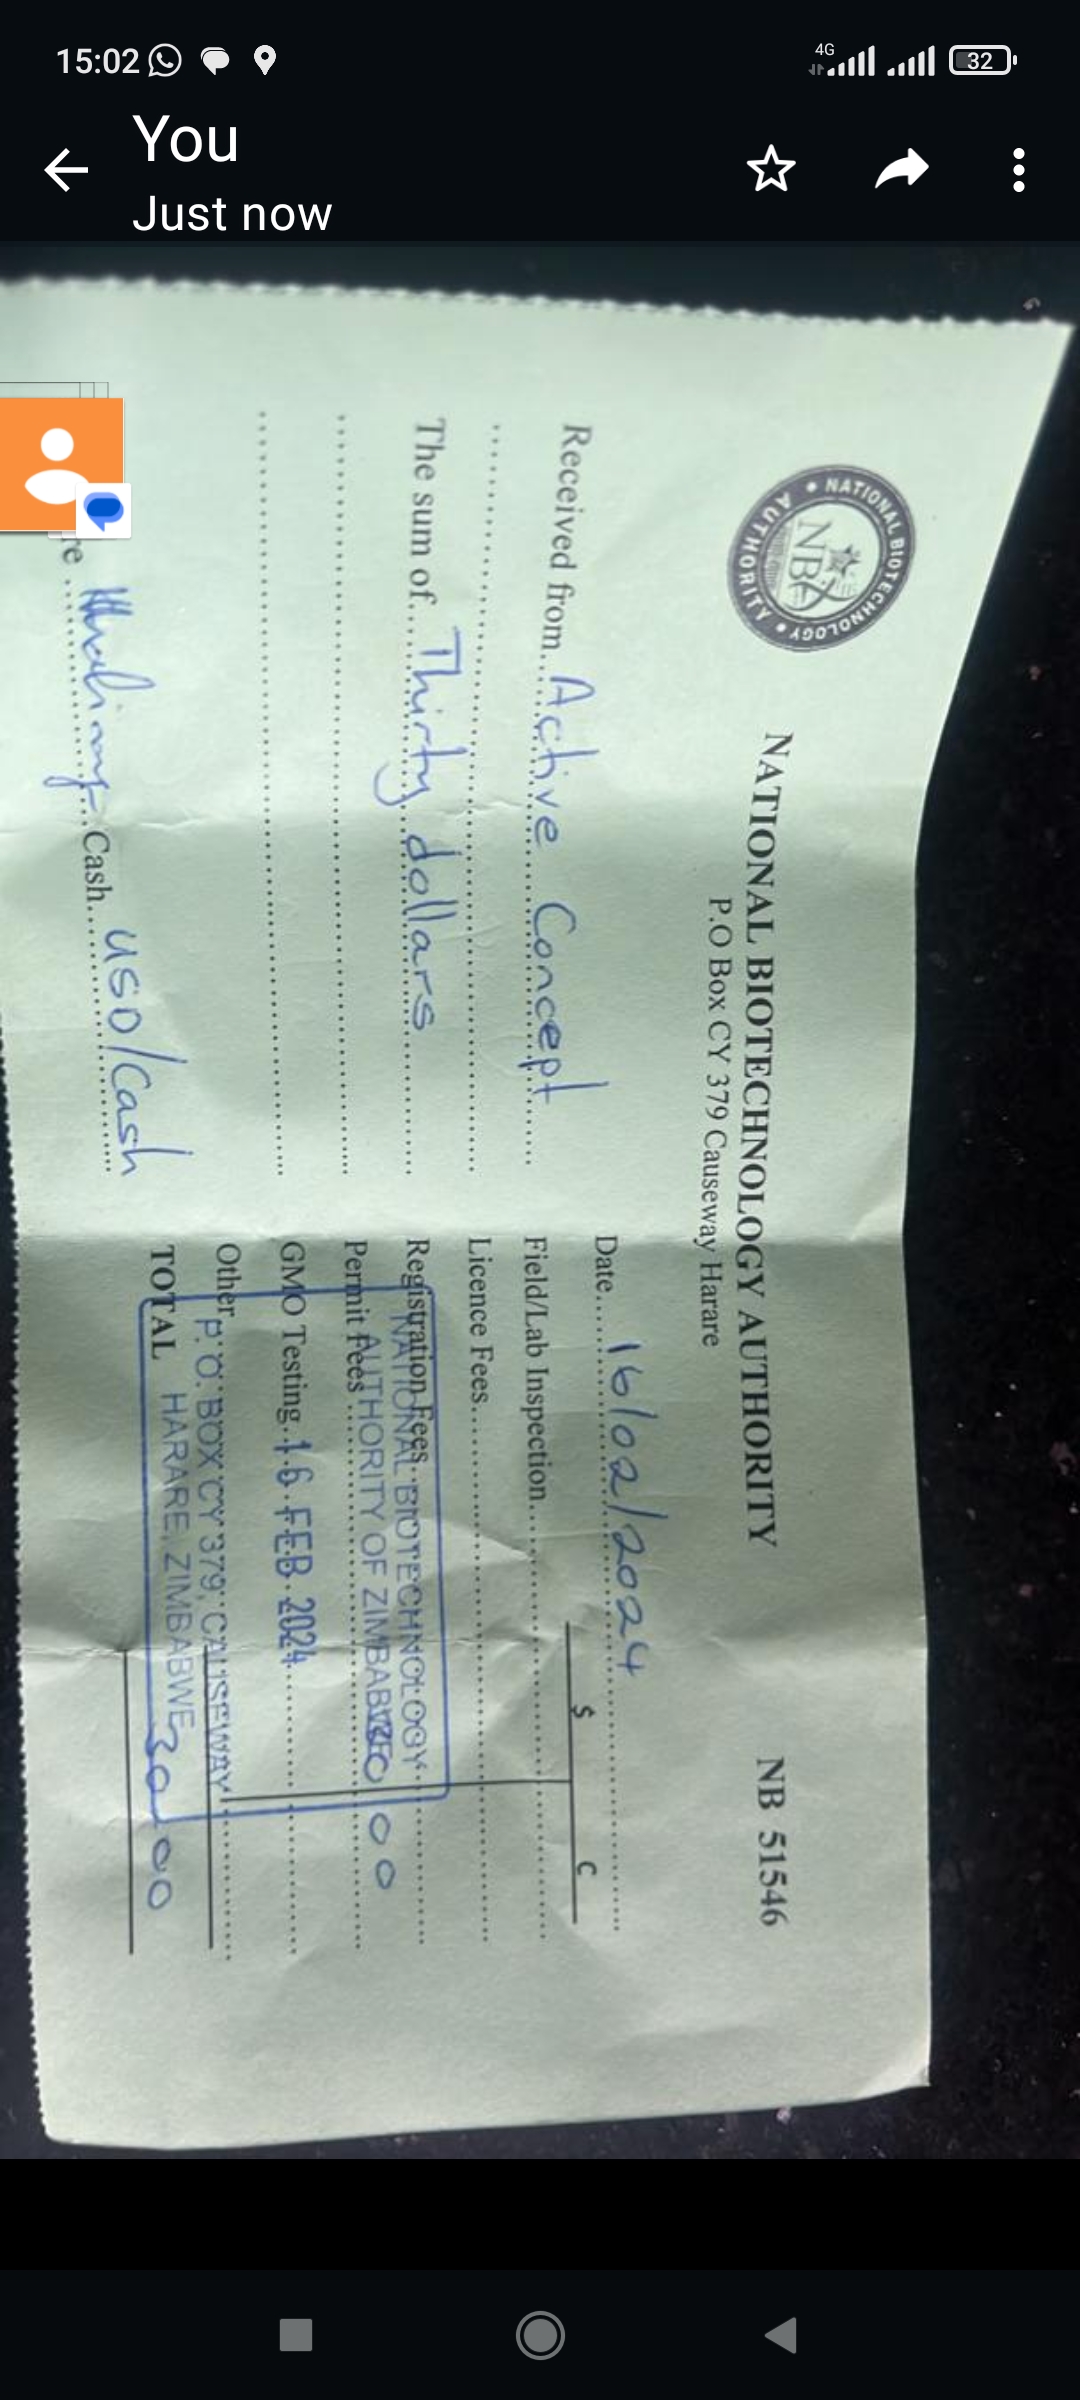 15:02
4G
32
You
Just now
NATIONAL BIOTECHNOLOGY AUTHORITY
NBA
NATIONAL BIOTECHNOLOGY AUTHORITY
NB 51546
P.O Box CY 379 Causeway Harare
Date 16/02/2024
Received from Active Concept
$ C
Field/Lab Inspection
Licence Fees
The sum of Thirty dollars
Registration Fees
Permit Fees 30 00
GMO Testing
Other
TOTAL 30 00
re
Cash USD/Cash
NATIONAL BIOTECHNOLOGY
AUTHORITY OF ZIMBABWE
16 FEB 2024
P.O. BOX CY 379, CAUSEWAY
HARARE, ZIMBABWE